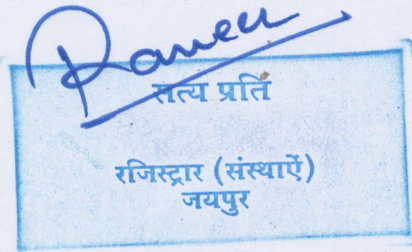 सत्य प्रति
रजिस्ट्रार (संस्थाऐं)
जयपुर